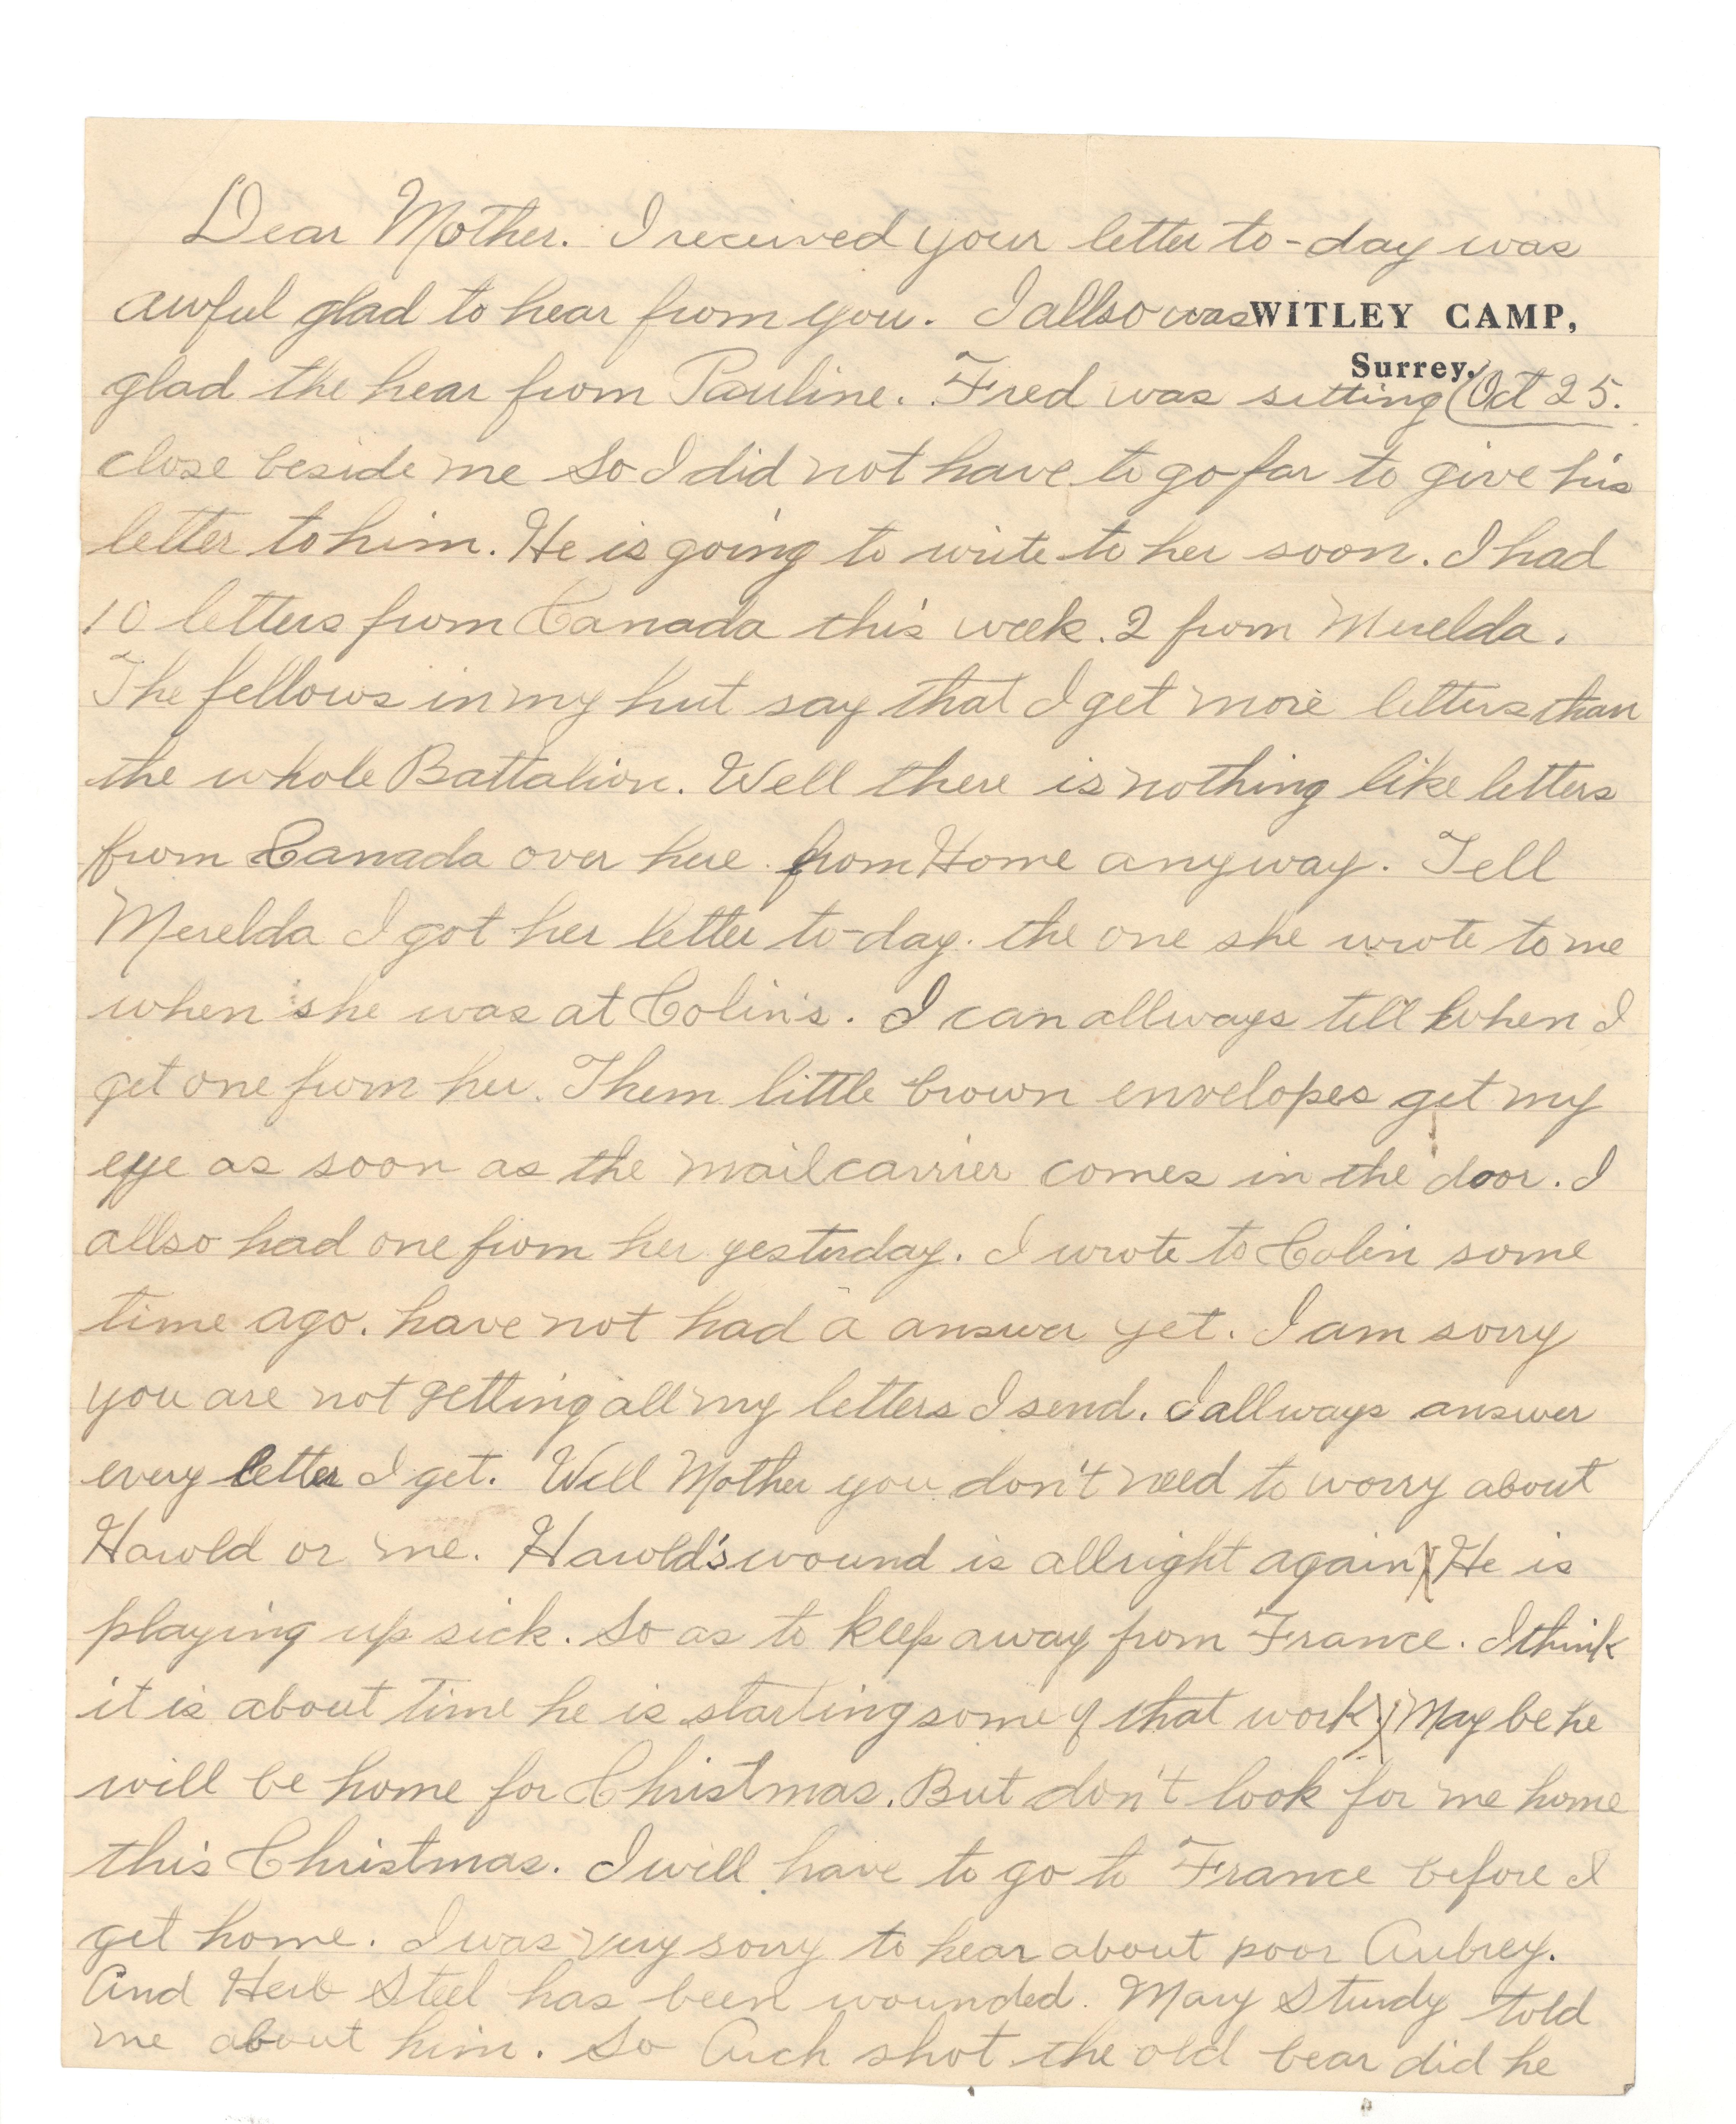 Dear Mother. I received your letter to-day was
awful glad to hear from you. I allso was WITLEY CAMP,
Surrey.
glad the hear from Pauline. Fred was sitting Oct 25.
close beside me So I did not have to go far to give his
letter to him. He is going to write to her soon. I had
10 letters from Canada this week. 2 from Merelda.
The fellows in my hut say that I get more letters than
the whole Battalion. Well there is nothing like letters
from Canada over here. from Home anyway. Tell
Merelda I got her letter to-day. the one she wrote to me
when she was at Colin's. I can allways tell when I
get one from her. Them little brown envelopes get my
eye as soon as the mailcarrier comes in the door. I
allso had one from her yesterday. I wrote to Colin some
time ago. have not had a answer yet. I am sorry
you are not getting all my letters I send. I allways answer
every letter I get. Well Mother you don't need to worry about
Harold or me. Harold's wound is allright again (He is
playing up sick. So as to keep away from France. I think
it is about time he is starting some of that work.) May be he
will be home for Christmas. But don't look for me home
this Christmas. I will have to go to France before I
get home. I was very sorry to hear about poor Aubrey.
And Herb Steel has been wounded. Mary Sturdy told
me about him. So Arch shot the old bear did he